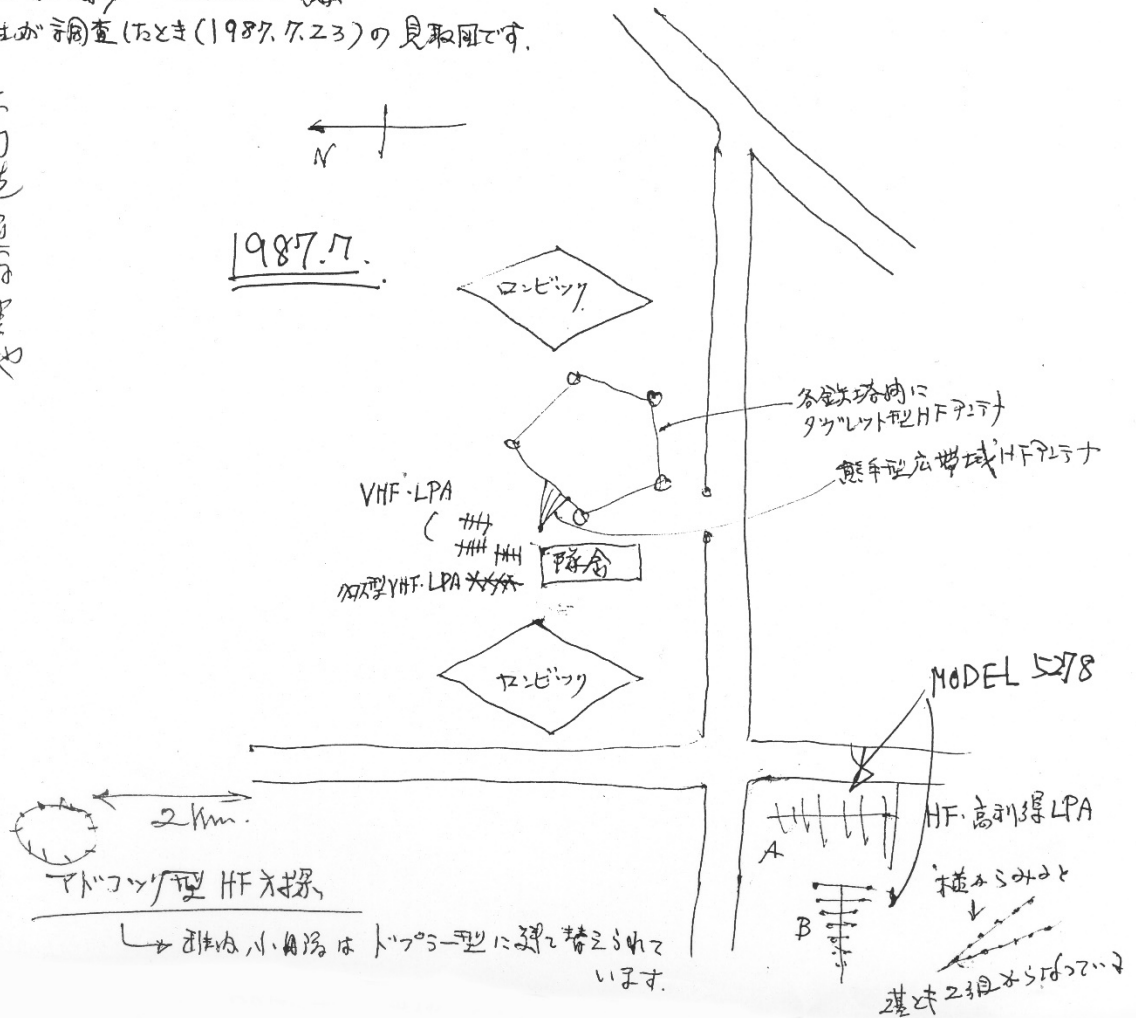 が調査したとき(1987.7.23)の見取図です.
N
1987.7.
ロンビック
各鉄塔間に
タブレット型HFアンテナ
熊手型広帯域HFアンテナ
VHF・LPA
隊舎
クロス型VHF・LPA
ロンビック
MODEL 5278
2km.
HF・高利得LPA
A
アドコック型 HF方探
横からみると
B
は ドップラー型に建て替えられて
います.
2基とも2組からなっている